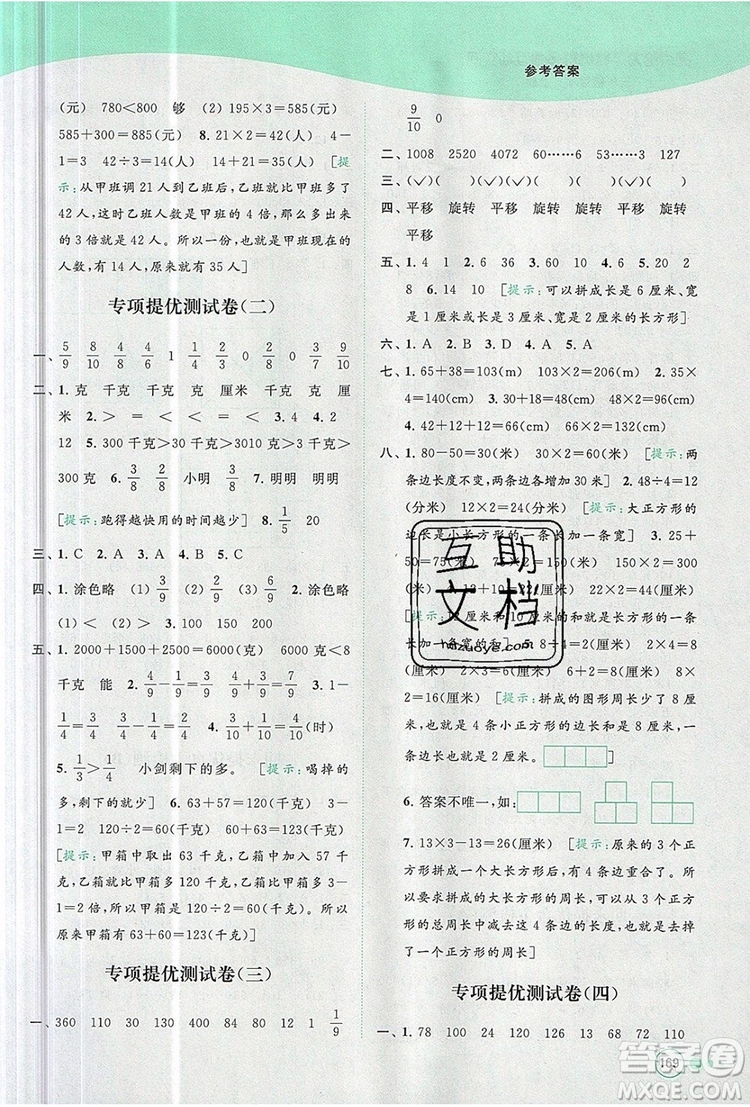 参考答案
(元) 780<800 够 (2) 195×3=585(元)
585+300=885(元) 8. 21×2=42(人) 4-
1=3 42÷3=14(人) 14+21=35(人) [提
示:从甲班调 21 人到乙班后,乙班就比甲班多了
42 人,这时乙班人数是甲班的 4 倍,那么多出来
的 3 倍就是 42 人。所以一份,也就是甲班现在的
人数,有 14 人,原来就有 35 人]
专项提优测试卷(二)
一、5/9 8/10 4/8 4/6 1 1/4 2/3 0 2/8 0 3/7 9/10
二、1. 克 千克 千克 克 厘米 千克 克 厘
米 2. > = < < = < 3. 3/8 4/8 4. 2
12 5. 300 千克>30 千克>3010 克>3 千克>
300 克 6. 3/8 2/8 小明 3/8 7. 明明 明明
[提示:跑得越快用的时间越少] 8. 1/5 20
三、1. C 2. A 3. A 4. C 5. C
四、1. 涂色略 (1) > (2) = 2. 涂色略
(1) < (2) > 3. 100 150 200
五、1. 2000+1500+2500=6000(克) 6000 克<8
千克 能 2. 4/9-1/9=3/9 4/9+3/9=7/9 3. 1-
1/4=3/4 3/4-1/4=2/4 4. 3/10+1/10=4/10(时)
> 小剑剩下的多。 [提示:喝掉的
多,剩下的就少] 6. 63+57=120(千克) 3-
1=2 120÷2=60(千克) 60+63=123(千克)
[提示:甲箱中取出 63 千克,乙箱中加入 57 千
克,乙箱就比甲箱多了 120 千克,正好是甲箱的
3-1=2 倍,所以甲箱现在有 60 千克。所以
原来甲箱有 63+60=123(千克)]
专项提优测试卷(三)
一、360 110 30 130 50 90 80 12 1 1/9
9/10 0
二、1008 2520 4072 60……6 53……3 127
三、(✓)(✓)( )(✓)( )(✓)
四、平移 旋转 平移 旋转 平移 旋转 旋转
平移
五、1. 4 1 2. 6 36 3. 60 10 4. 8 2 5. 2
8 6. 14 10 [提示:可以拼成长是 6 厘米、宽
是 1 厘米或长是 3 厘米、宽是 2 厘米的长方形]
六、1. A 2. B 3. A 4. A 5. A
七、1. 65+38=103(m) 103×2=206(m) 2. 35×
4=140(cm) 3. 20×2=40(cm) 6×4=24(cm)
4. 42+12+12=66(cm) 66×2=132(cm)
八、1. 80-50=30(米) 30×2=60(米) [提示:两
条边长度不变,两条边各增加 30 米] 2. 48÷4=12
(分米) 12×2=24(分米) [提示:大正方形的
边长是小长方形的一条长加一条宽] 3. 25+
50=75(米) 75×2=150(米) 150×2=300(米)
4. 60÷6=10(厘米) 12+10=22(厘米) 22×2=44(厘米)
[提示:两个长方形的长和宽的和就是长方形的一条长
加一条宽的和] 5. 2×4=8(厘米)
2×5=10(厘米) 6+2=8(厘米) 8×2=
16(厘米) [提示:拼成的图形周长是 8 厘
米,也就是 4 条小正方形的边长和是 8 厘米,一
条边长也就是 2 厘米]
6. 答案不唯一,如:
7. 13×3-13=26(厘米) [提示:原来的 3 个正
方形拼成一个大长方形后,有 4 条边重合了。所
以要求拼成的大长方形的周长,可以用 3 个正方
形的周长之和减去这 4 条边的长度,也就是减
去了一个正方形的周长]
专项提优测试卷(四)
一、1. 78 100 24 120 13 68 72 110
互助
文档
169
答案圈
MXQE.COM